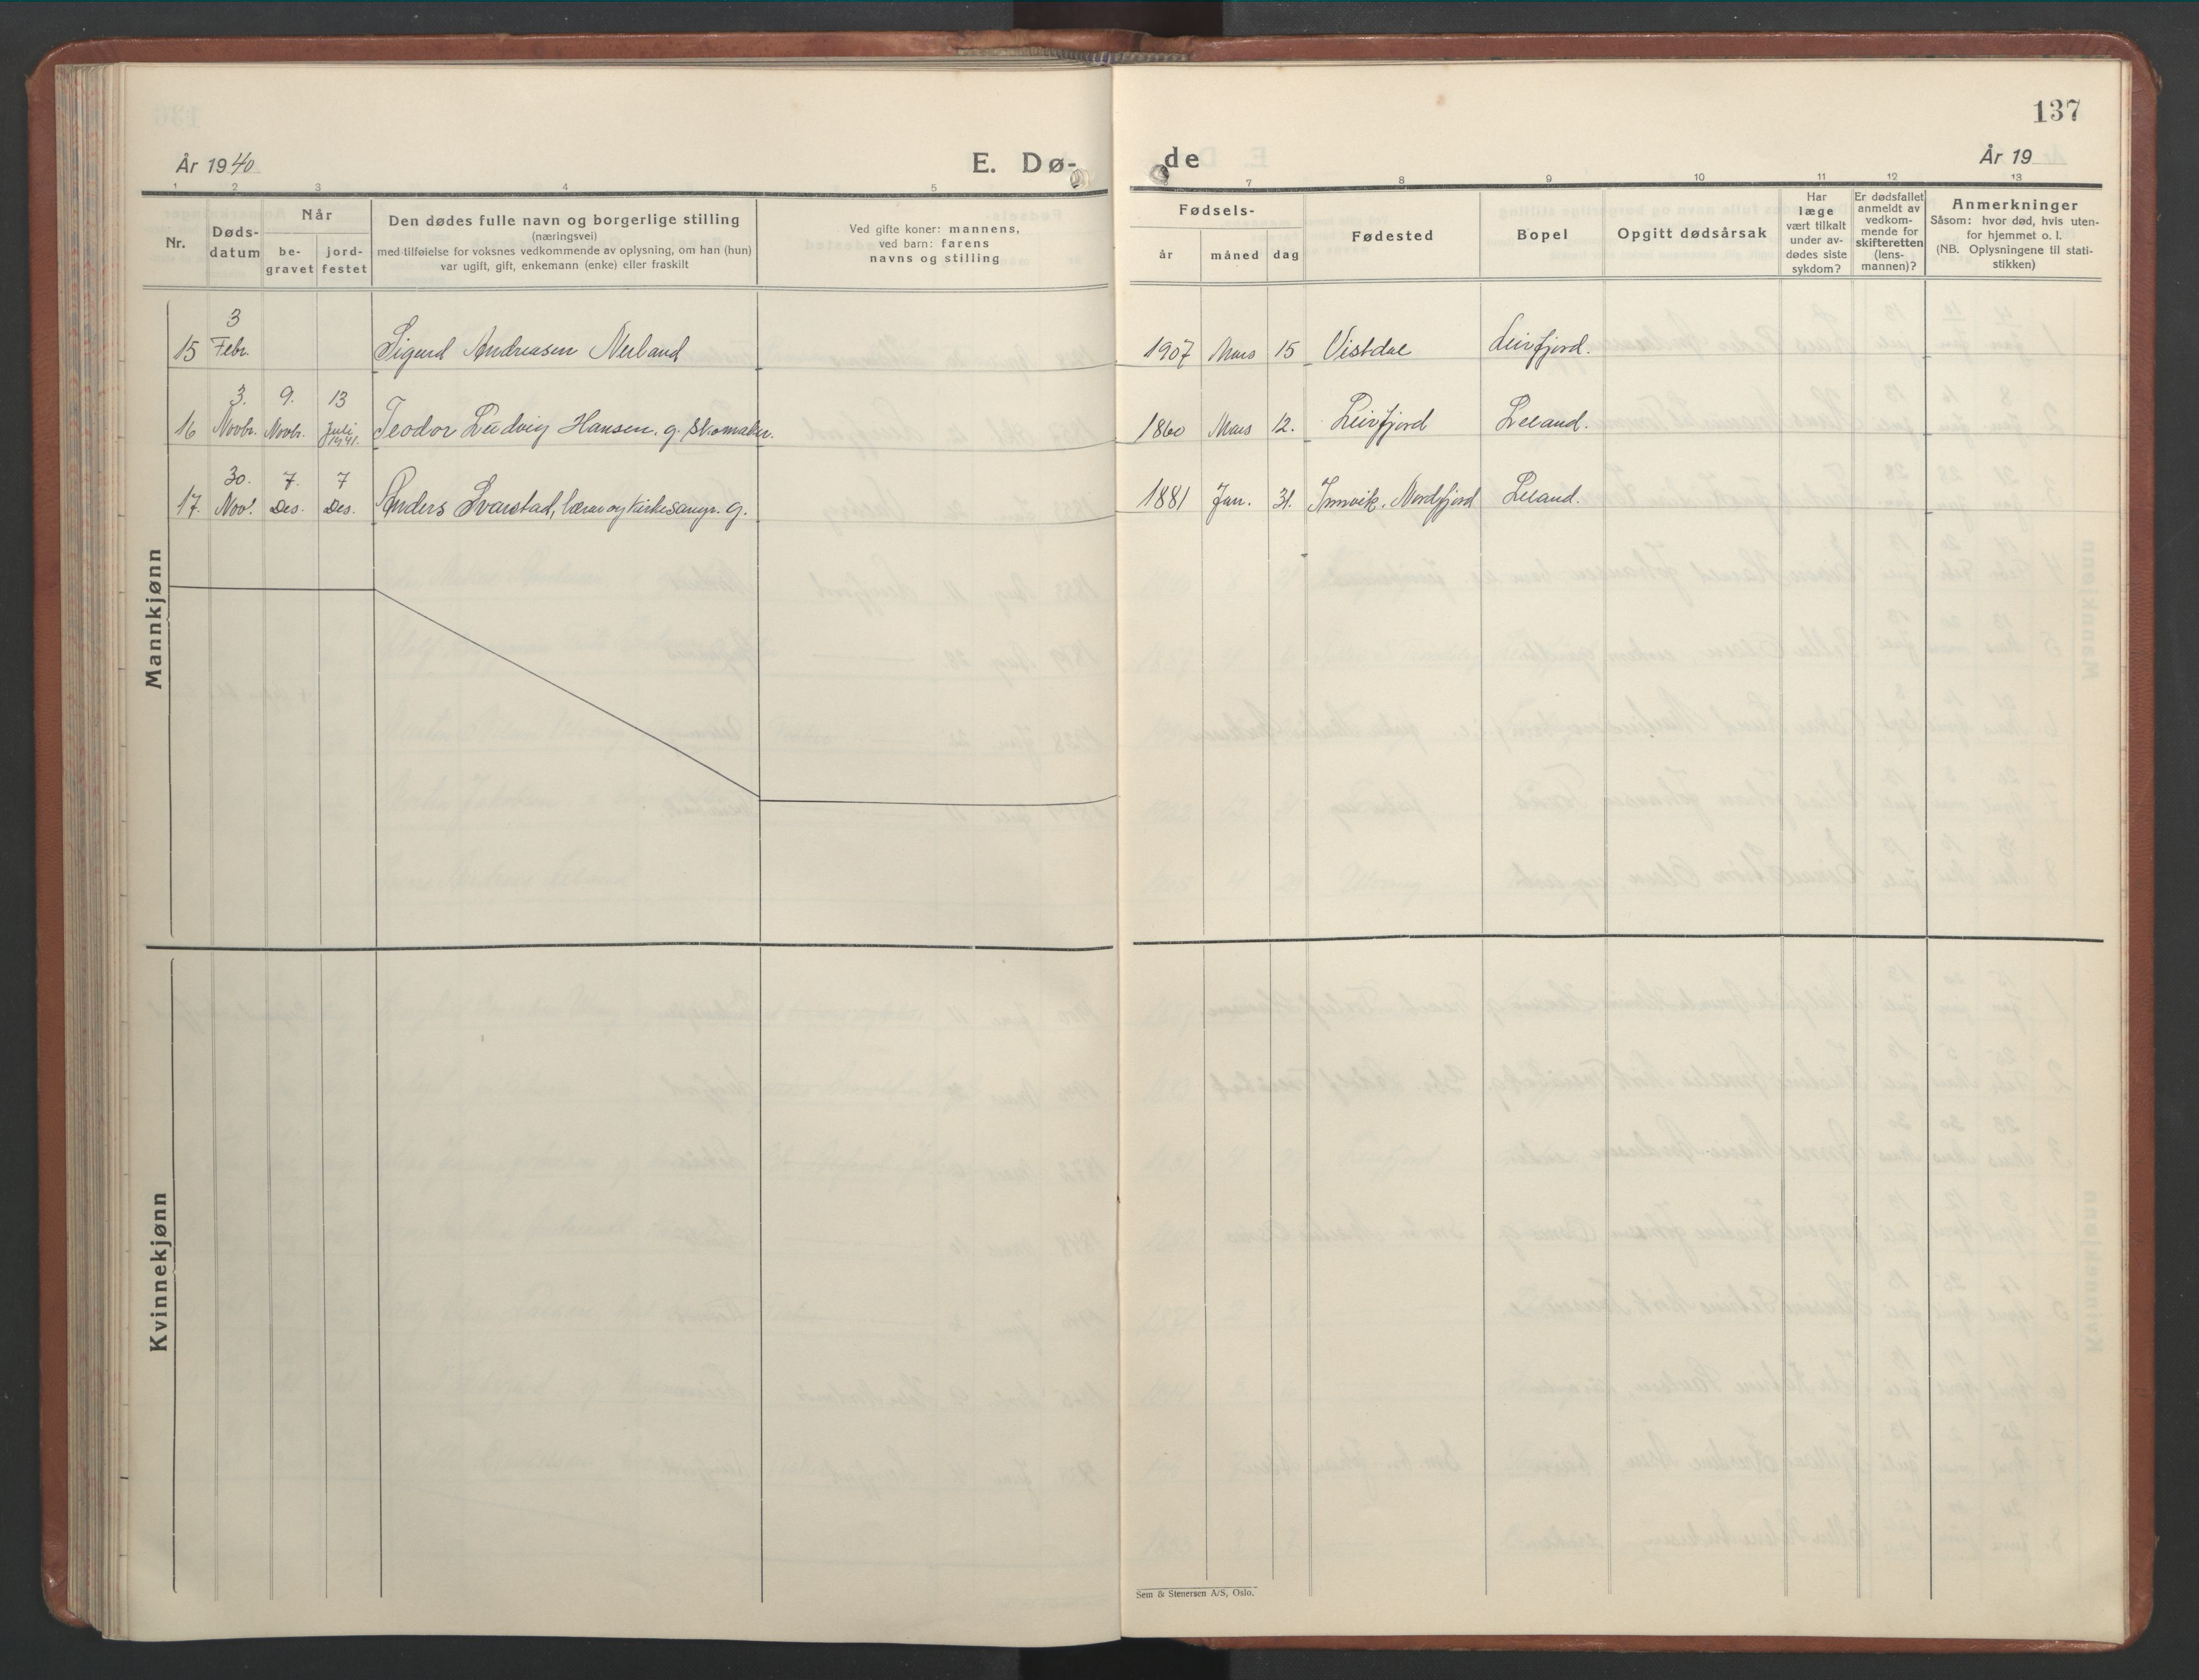 137
År 1940
E. Dø-
de
År 19
1 2 3 4 5
7 8 9 10 11 12 13
Nr.
Døds-
datum
Når
be-
gravet
jord-
festet
Den dødes fulle navn og borgerlige stilling
(næringsvei)
med tilføielse for voksnes vedkommende av oplysning, om han (hun)
var ugift, gift, enkemann (enke) eller fraskilt
Ved gifte koner: mannens,
ved barn: farens
navns og stilling
Fødsels-
år måned dag
Fødested
Bopel
Opgitt dødsårsak
Har
læge
vært tilkalt
under av-
dødes siste
sykdom?
Er dødsfallet
anmeldt av
vedkom-
mende for
skifteretten
(lens-
mannen)?
Anmerkninger
Såsom: hvor død, hvis uten-
for hjemmet o. l.
(NB. Oplysningene til stati-
stikken)
Mannkjønn
3
15 Febr. Sigurd Andreasen Nerland 1907 Mars 15 Vistdal Leirfjord.
3. 9. 13
16 Novbr. Novbr. Juli 1941. Teodor Ludvig Hansen. g. skomaker. 1860 Mars 12. Leirfjord Leland.
30. 7. 7
17. Nov. Des. Des. Anders Svarstad, lærer og kirkesangr. g. 1881 Jan. 31. Innvik. Nordfjord Leland.
Kvinnekjønn
Sem & Stenersen A/S, Oslo.